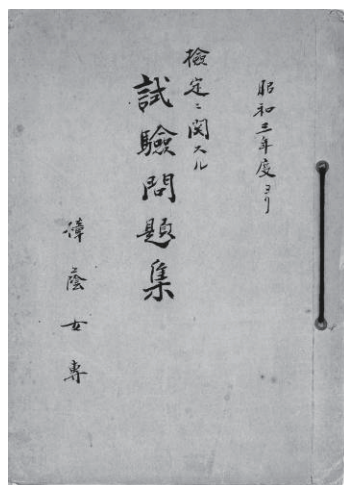 昭和三年度ヨリ
檢定ニ関スル
試驗問題集
樟蔭女専